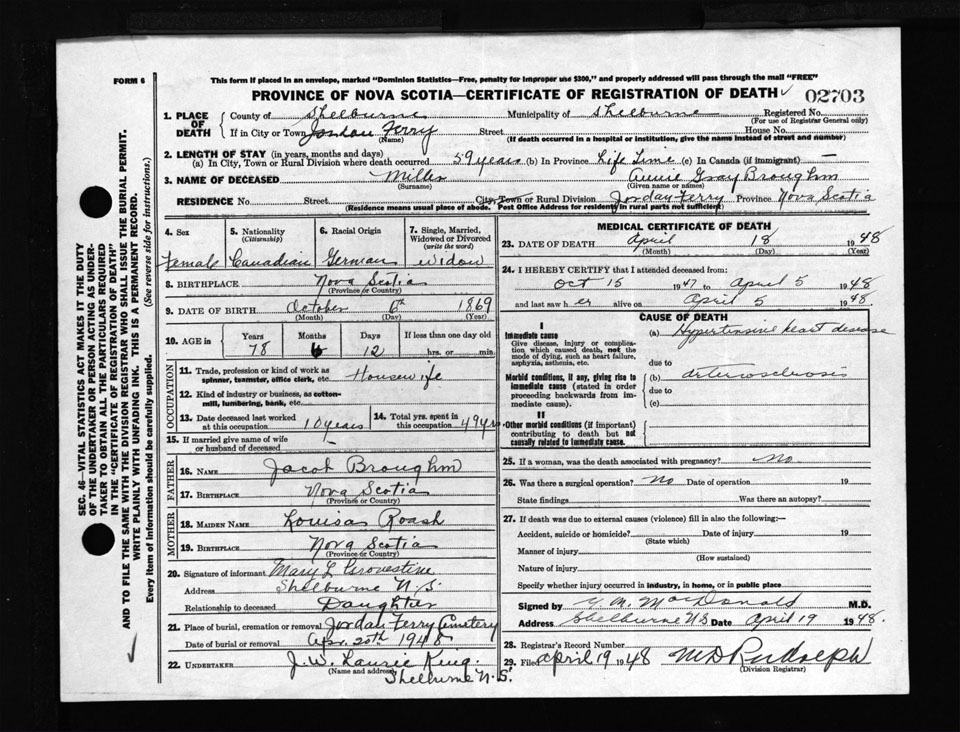 FORM 6
This form if placed in an envelope, marked "Dominion Statistics—Free, penalty for improper use $300," and properly addressed will pass through the mail "FREE"
PROVINCE OF NOVA SCOTIA—CERTIFICATE OF REGISTRATION OF DEATH ✓ 02703
1. PLACE OF DEATH County of Shelburne Municipality of Shelburne Registered No.
(For use of Registrar General only)
If in City or Town Jordan Ferry Street House No.
(Name) (If death occurred in a hospital or institution, give the name instead of street and number)
2. LENGTH OF STAY (in years, months and days)
(a) In City, Town or Rural Division where death occurred 59 years (b) In Province Life Time (c) In Canada (if immigrant) —
3. NAME OF DECEASED Miller Annie Gray Broughm
(Surname) (Given name or names)
RESIDENCE No. Street City, Town or Rural Division Jordan Ferry Province Nova Scotia
(Residence means usual place of abode. Post Office Address for residents in rural parts not sufficient)
4. Sex 5. Nationality 6. Racial Origin 7. Single, Married, Widowed or Divorced
(Citizenship) (write the word)
Female Canadian German widow
8. BIRTHPLACE Nova Scotia
(Province or Country)
9. DATE OF BIRTH October 6th 1869
(Month) (Day) (Year)
10. AGE in Years Months Days If less than one day old
78 6 12 hrs. or min.
OCCUPATION
11. Trade, profession or kind of work as spinner, teamster, office clerk, etc. Housewife
12. Kind of industry or business, as cotton-mill, lumbering, bank, etc.
13. Date deceased last worked at this occupation 10 years 14. Total yrs. spent in this occupation 49 yrs
15. If married give name of wife or husband of deceased —
FATHER
16. NAME Jacob Broughm
17. BIRTHPLACE Nova Scotia
(Province or Country)
MOTHER
18. MAIDEN NAME Louisa Roash
19. BIRTHPLACE Nova Scotia
(Province or Country)
20. Signature of informant Mary L
Address Shelburne N.S.
Relationship to deceased Daughter
21. Place of burial, cremation or removal Jordan Ferry Cemetery
Date of burial or removal Apr. 20th 1948
22. UNDERTAKER J. W. Laurie King.
(Name and address) Shelburne N.S.
MEDICAL CERTIFICATE OF DEATH
23. DATE OF DEATH April 18 1948
(Month) (Day) (Year)
24. I HEREBY CERTIFY that I attended deceased from:
Oct 15 1947 to April 5 1948
and last saw h er alive on April 5 1948.
CAUSE OF DEATH
I
Immediate cause (a) Hypertensive heart disease
Give disease, injury or complication which caused death, not the mode of dying, such as heart failure, asphyxia, asthenia, etc.
due to
Morbid conditions, if any, giving rise to immediate cause (stated in order proceeding backwards from immediate cause). (b) Arteriosclerosis
due to
(c)
II
Other morbid conditions (if important) contributing to death but not causally related to immediate cause.
25. If a woman, was the death associated with pregnancy? No.
26. Was there a surgical operation? No Date of operation 19
State findings Was there an autopsy?
27. If death was due to external causes (violence) fill in also the following:—
Accident, suicide or homicide? Date of injury 19
(State which)
Manner of injury
(How sustained)
Nature of injury
Specify whether injury occurred in industry, in home, or in public place
Signed by MacDonald M.D.
Address Shelburne N.S Date April 19 1948.
28. Registrar's Record Number
29. Filed April 19 1948 M D Rudolph
(Division Registrar)
SEC. 46—VITAL STATISTICS ACT MAKES IT THE DUTY
OF THE UNDERTAKER OR PERSON ACTING AS UNDER-
TAKER TO OBTAIN ALL THE PARTICULARS REQUIRED
IN THE "CERTIFICATE OF REGISTRATION OF DEATH"
AND TO FILE THE SAME WITH THE DIVISION REGISTRAR WHO SHALL ISSUE THE BURIAL PERMIT.
WRITE PLAINLY WITH UNFADING INK. THIS IS A PERMANENT RECORD.
Every item of information should be carefully supplied. (See reverse side for instructions.)